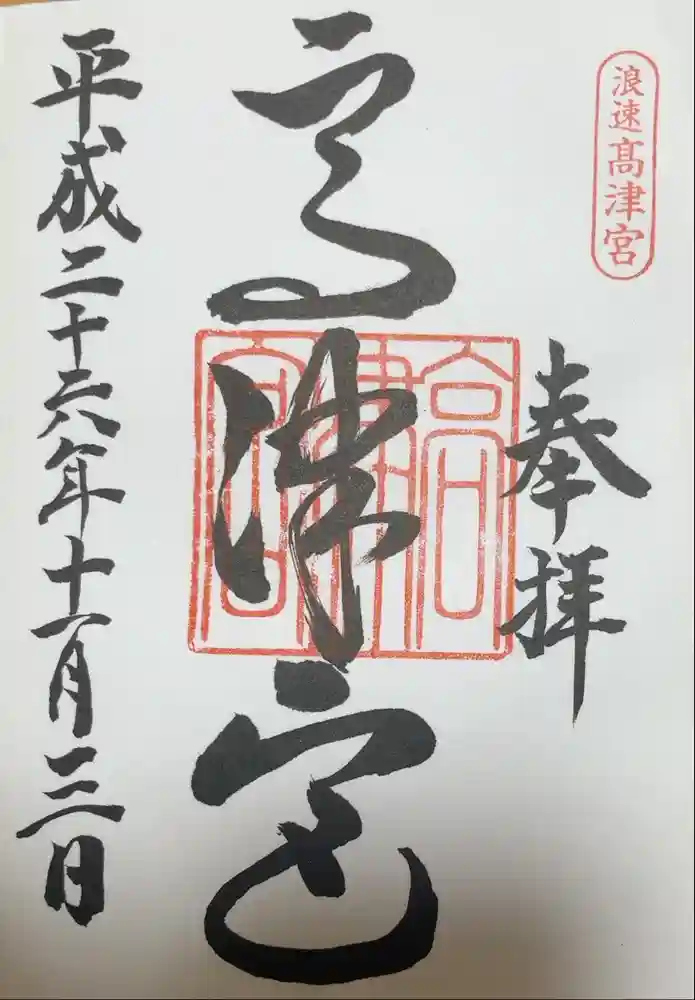 浪速髙津宮
奉拝
高津宮
髙津宮
平成二十六年十一月三日